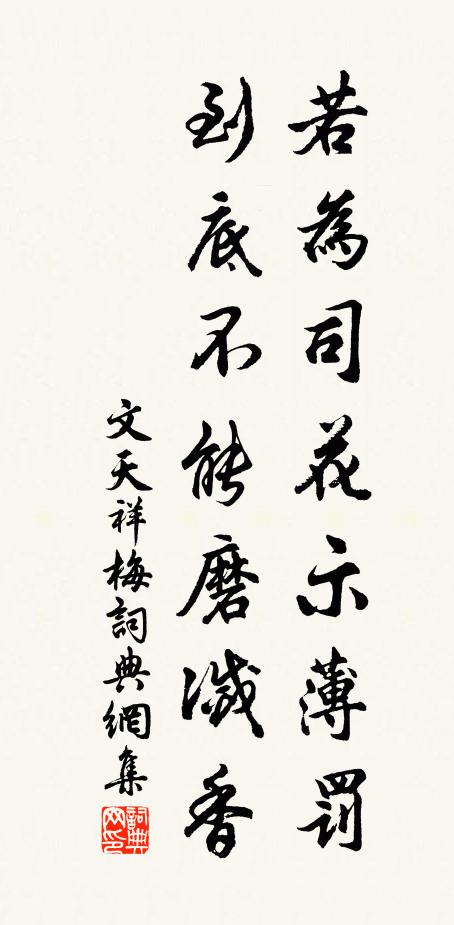 若為司花示薄罰
到底不能磨滅香
文天祥梅詞典網集
詞典网印